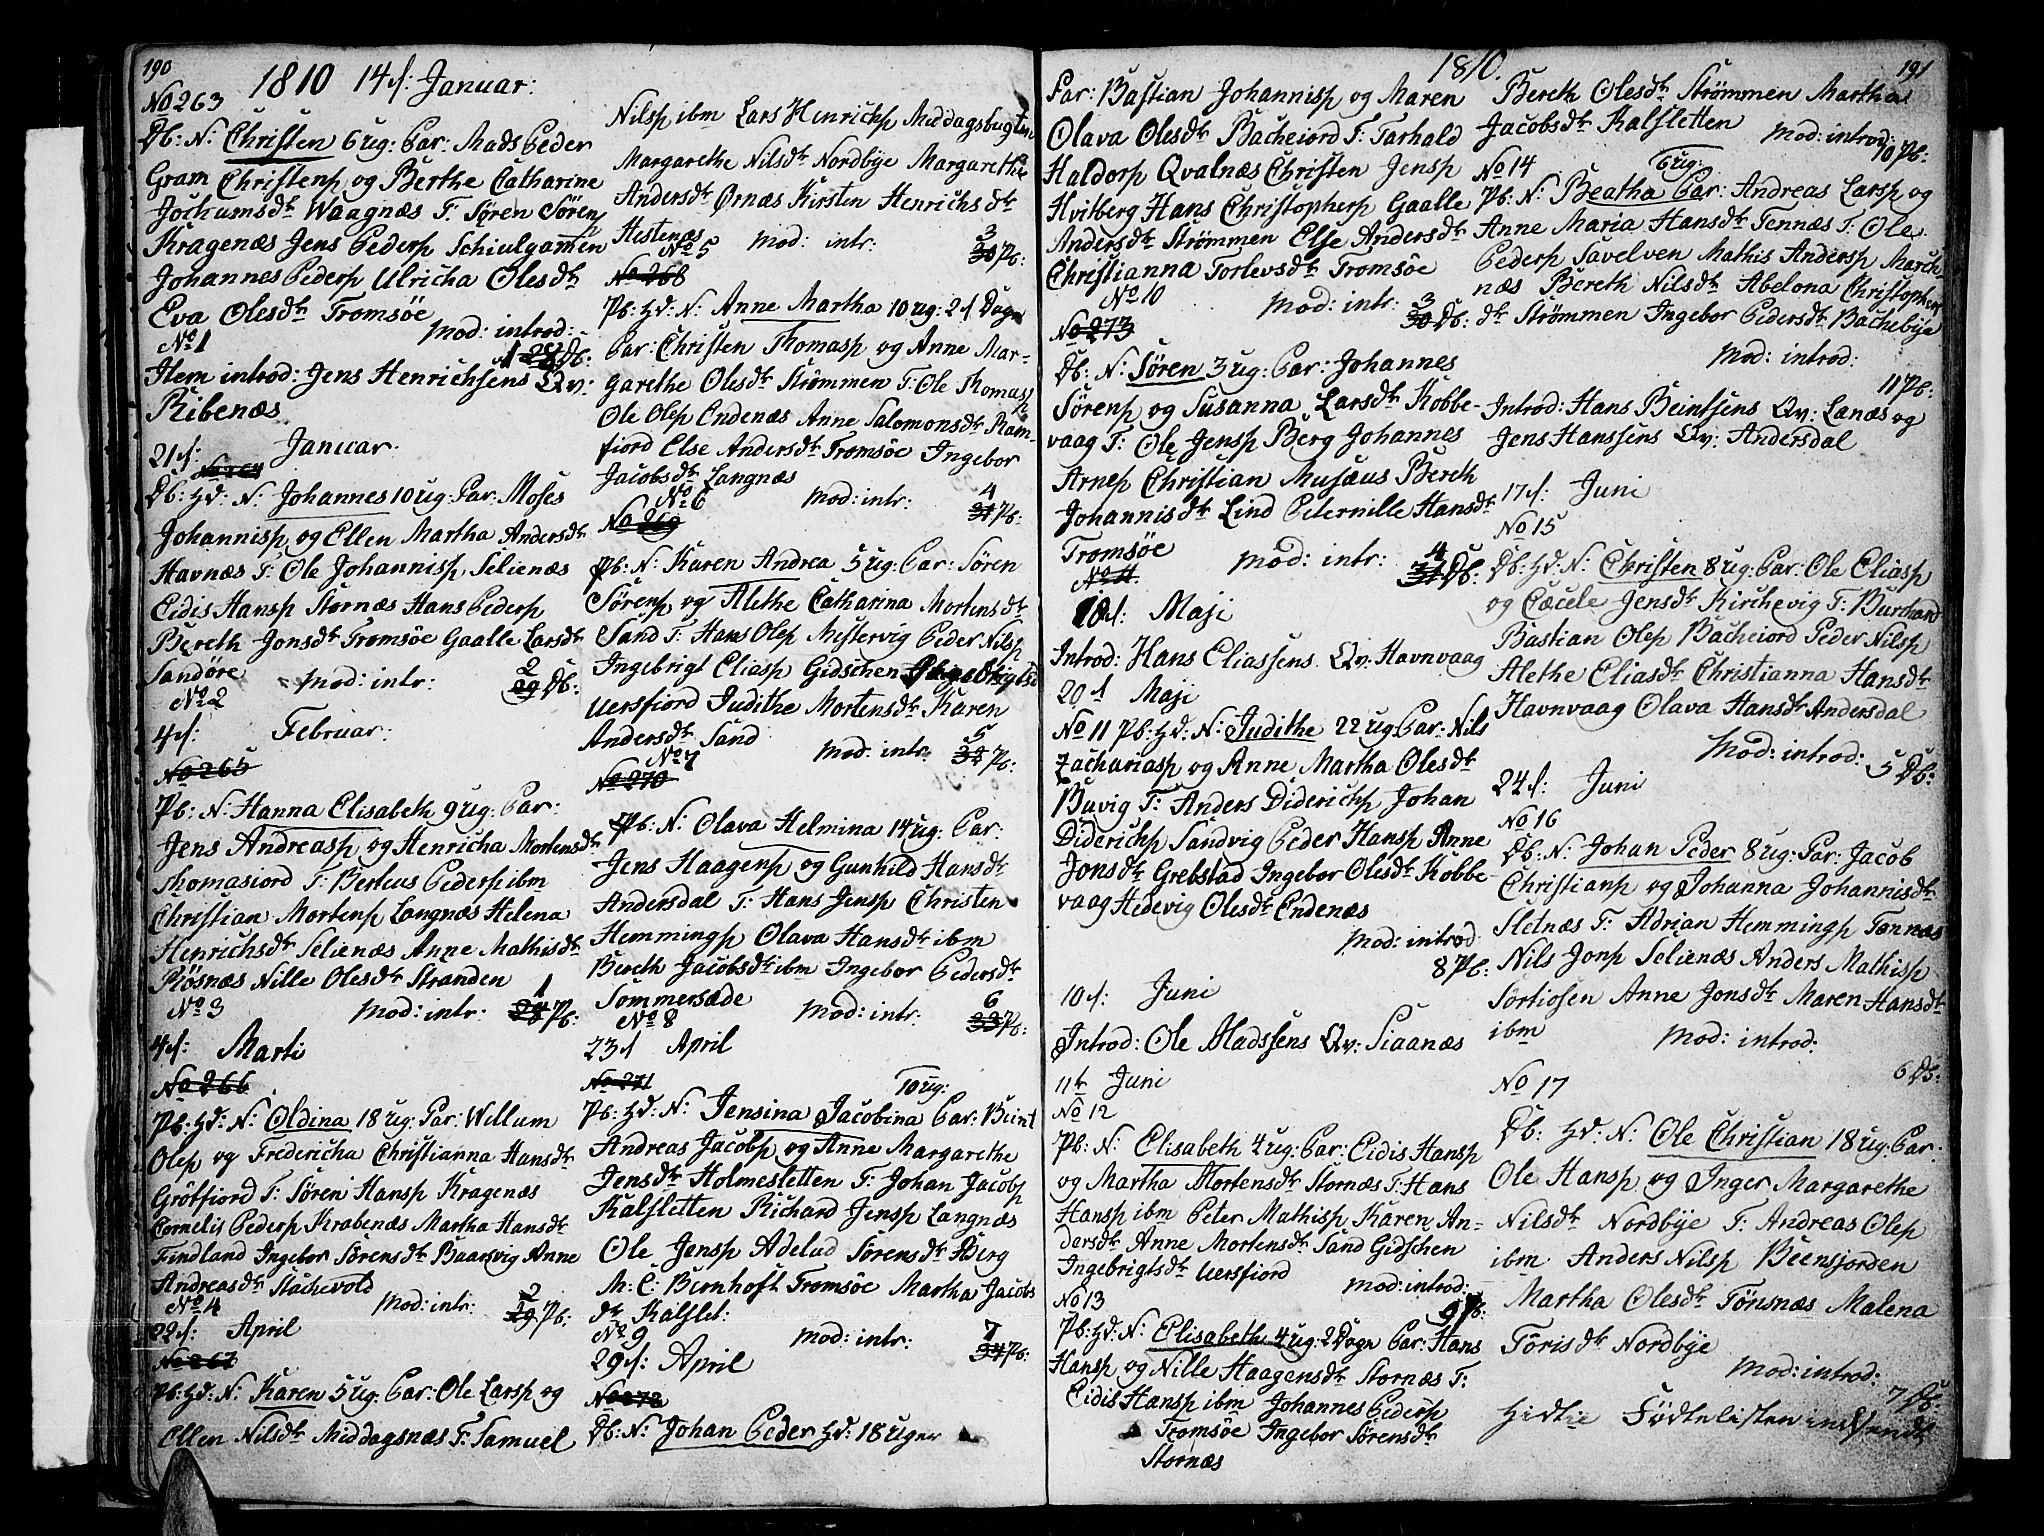 190
1810 14 s: Januar:
No 263
Db: N: Christen 6 ug: Par: Mads Peder
Gram Christensp og Berthe Catharine
Jochumsdr Waagnæs T: Søren Sørensp
Kragenæs Jens Pedersp Schiulgamen
Johannes Pedersp Ulricha Olesdr
Eva Olesdr Tromsöe
Mod: introd:
No 1
1 28 Db:
Item introd: Jens Henrichsens Qv:
Ribenæs
21 s: Januar:
No 264
Db: hd: N: Johannes 10 ug: Par: Moses
Johannisp og Ellen Martha Andersdr
Havnæs T: Ole Johannisp Selienæs
Eidis Hansp Stornæs Hans Pedersp
Bereth Jonsdr Tromsöe Gaalle Larsdr
Sandöre Mod: intr: 2
No 2 29 Db:
4 s: Februar:
No 265
Pb: N: Hanna Elisabeth 9 ug: Par:
Jens Andreasp og Henricha Mortensdr
Thomasiord T: Berteus Pedersp ibm
Christian Mortensp Langnæs Helena
Henrichsdr Selienæs Anne Mathisdr
Rösnæs Nille Olesdr Stranden
No 3 Mod: intr: 1 28 Pb:
4 s: Marti
No 266
Pb: hd: N: Oldina 18 ug: Par: Willum
Olesp og Fredericha Christianna Hansdr
Grötfiord T: Sören Hansp Kragenæs
Cornelis Pedersp Krabenæs Martha Hansdr
Findland Ingebor Sörensdr Baarsvig Anne
Andreasdr Stachevold
No 4 Mod: intr: 2 29 Pb:
22 s: April
No 267
Pb: hd: N: Karen 5 ug: Par: Ole Larsp og
Ellen Nilsdr Middagsnæs T: Samuel
Nilsp ibm Lars Henrichsp Middagsbugten
Margarethe Nilsdr Nordbye Margarethe
Andersdr Örnæs Kirsten Henrichsdr
Hestenæs
No 5 Mod: intr: 3 30 Pb:
No 268
Pb: hd: N: Anne Martha 10 ug: 2 s Dage
Par: Christen Thomasp og Anne Mar-
garethe Olesdr Strömmen T: Ole Thomasp
Ole Olesp Endenæs Anne Salomonsdr Ram-
fiord Else Andersdr Tromsöe Ingebor
Jacobsdr Langnæs
No 6 Mod: intr: 4 31 Pb:
No 269
Pb: N: Karen Andrea 5 ug: Par: Sören
Sörensp og Alethe Catharina Mortensdr
Sand T: Hans Olesp Mestervig Peder Nilsp
Ingebrigt Eliasp Gidschen
Uersfiord Judithe Mortensdr Karen
Andersdr Sand
No 7 Mod: intr: 5 32 Pb:
No 270
Pb: N: Olava Helmina 14 ug: Par:
Jens Haagensp og Gunhild Hansdr
Andersdal T: Hans Jensp Christen
Hemmingsp Olava Hansdr ibm
Bereth Jacobsdr ibm Ingebor Pedersdr
Sommersæde
No 8 Mod: intr: 6 33 Pb:
23 s April
No 271
10 ug:
Pb: hd: N: Jensina Jacobina Par: Beint
Andreas Jacobsp og Anne Margarethe
Jensdr Holmesletten T: Johan Jacobsp
Kalsletten Richard Jensp Langnæs
Ole Jensp Adelud Sörensdr Berg
M: C: Bernhoft Tromsöe Martha Jacobs
dr Kalslet:
No 9 Mod: intr: 7 34 Pb:
29 s: April
No 272
Db: N: Johan Peder hd: 18 uger
1810.
191
Par: Bastian Johannisp og Maren
Olava Olesdr Bacheiord T: Tarhald
Haldorsp Qvalnæs Christen Jensp
Hvitberg Hans Christophersp Gaalle
Andersdr Strömmen Else Andersdr
Christianna Torlevsdr Tromsöe
No 10 Mod: intr: 3 30 Db:
No 273
Db: N: Sören 3 ug: Par: Johannes
Sörensp og Susanna Larsdr Kobbe-
vaag T: Ole Jensp Berg Johannes
Arnesp Christian Musæus Bereth
Johannisdr Lind Peternille Hansdr
Tromsöe Mod: intr: 4 31 Db:
No 11
s: Maji
Introd: Hans Eliassens Qv: Havnvaag
20 s Maji
No 11 Pb: hd: N: Judithe 22 ug: Par: Nils
Zachariasp og Anne Martha Olesdr
Buvig T: Anders Diderichsp Johan
Diderichsp Sandvig Peder Hansp Anne
Jonsdr Grebstad Ingebor Olesdr Kobbe-
vaag Hedevig Olesdr Endenæs
Mod: introd
8 Pb:
10 s: Juni
Introd: Ole Madssens Qv: Siaanæs
11te Juni
No 12
Pb: N: Elisabeth 4 ug: Par: Eidis Hansp
og Martha Mortensdr Stornæs T: Hans
Hansp ibm Peter Mathisp Karen An-
dersdr Anne Mortensdr Sand Gidschen
Ingebrigtsdr Uersfiord Mod: introd:
No 13 9 Pb:
Pb: hd: N: Elisabeth 4 ug: 2 Dage Par: Hans
Hansp og Nille Haagensdr Stornæs T:
Eidis Hansp ibm Johannes Pedersp
Tromsöe Ingebor Sörensdr
Stornæs
Bereth Olesdr Strömmen Martha
Jacobsdr Kalsletten Mod: introd:
10 Pb:
No 14 6 ug:
Pb: N: Beatha Par: Andreas Larsp og
Anne Maria Hansdr Tennæs T: Ole
Pedersp Savelven Mathis Andersp March
næs Bereth Nilsdr Abelona Christophers
dr Strömmen Ingebor Pedersdr Bachebye
Mod: introd:
11 Pb:
Introd: Hans Beintsens Qv: Lanæs og
Jens Hanssens Qv: Andersdal
17 s: Juni
No 15
Db: hd: N: Christen 8 ug: Par: Ole Eliasp
og Cæcele Jensdr Kirchevig T: Burchard
Bastian Olesp Bacheiord Peder Nilsp
Alethe Eliasdr Christianna Hansdr
Havnvaag Olava Hansdr Andersdal
Mod: introd:
5 Db:
24 s: Juni
No 16
Db: N: Johan Peder 8 ug: Par: Jacob
Christiansp og Johanna Johannisdr
Sletnæs T: Adrian Hemmingsp Tennæs
Nils Jonsp Selienæs Anders Mathisp
Sortiosen Anne Jonsdr Maren Hansdr
ibm Mod: introd:
6 Db:
No 17
Db: hd: N: Ole Christian 18 ug: Par:
Ole Hansp og Inger Margarethe
Nilsdr Nordbye T: Andreas Olesp
ibm Anders Nilsp Beensjorden
Martha Olesdr Tönsnæs Malena
Törisdr Nordbye
Mod: introd:
7 Db:
Hidtil Födtelisten indsendt